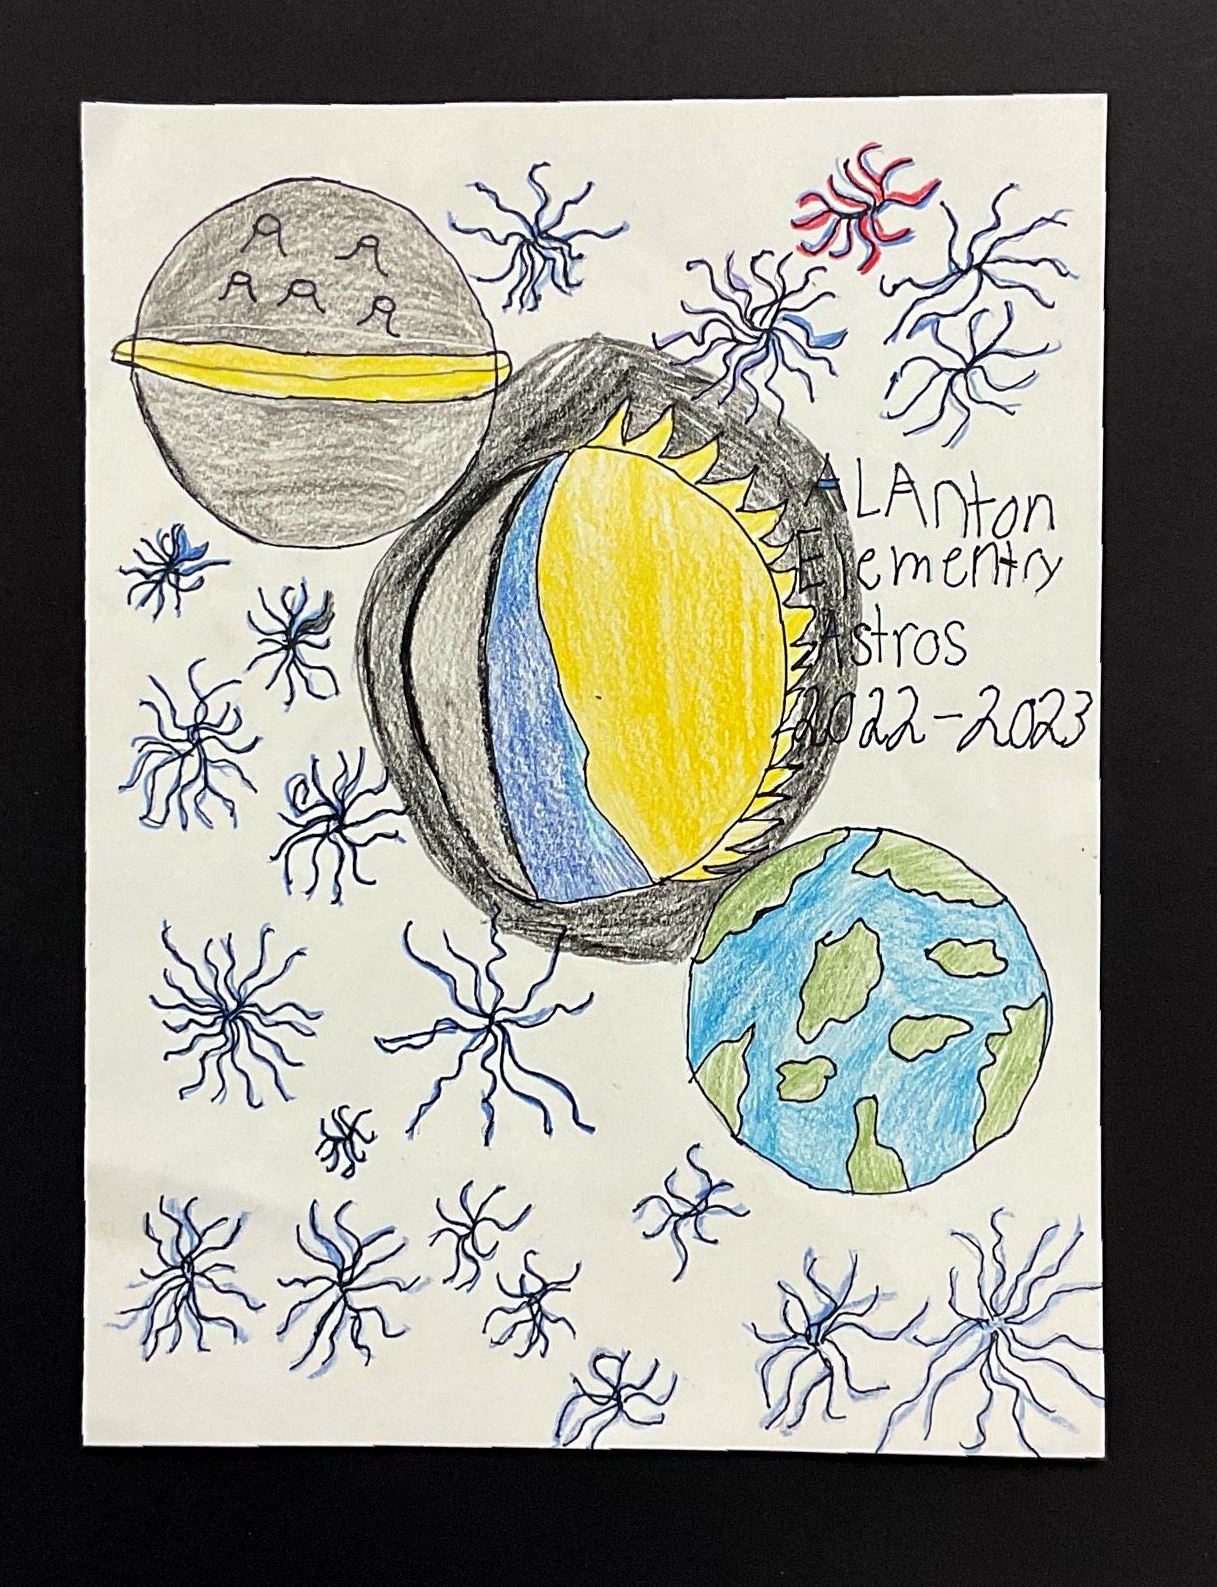 ALAnton
Elementry
Astros
2022-2023